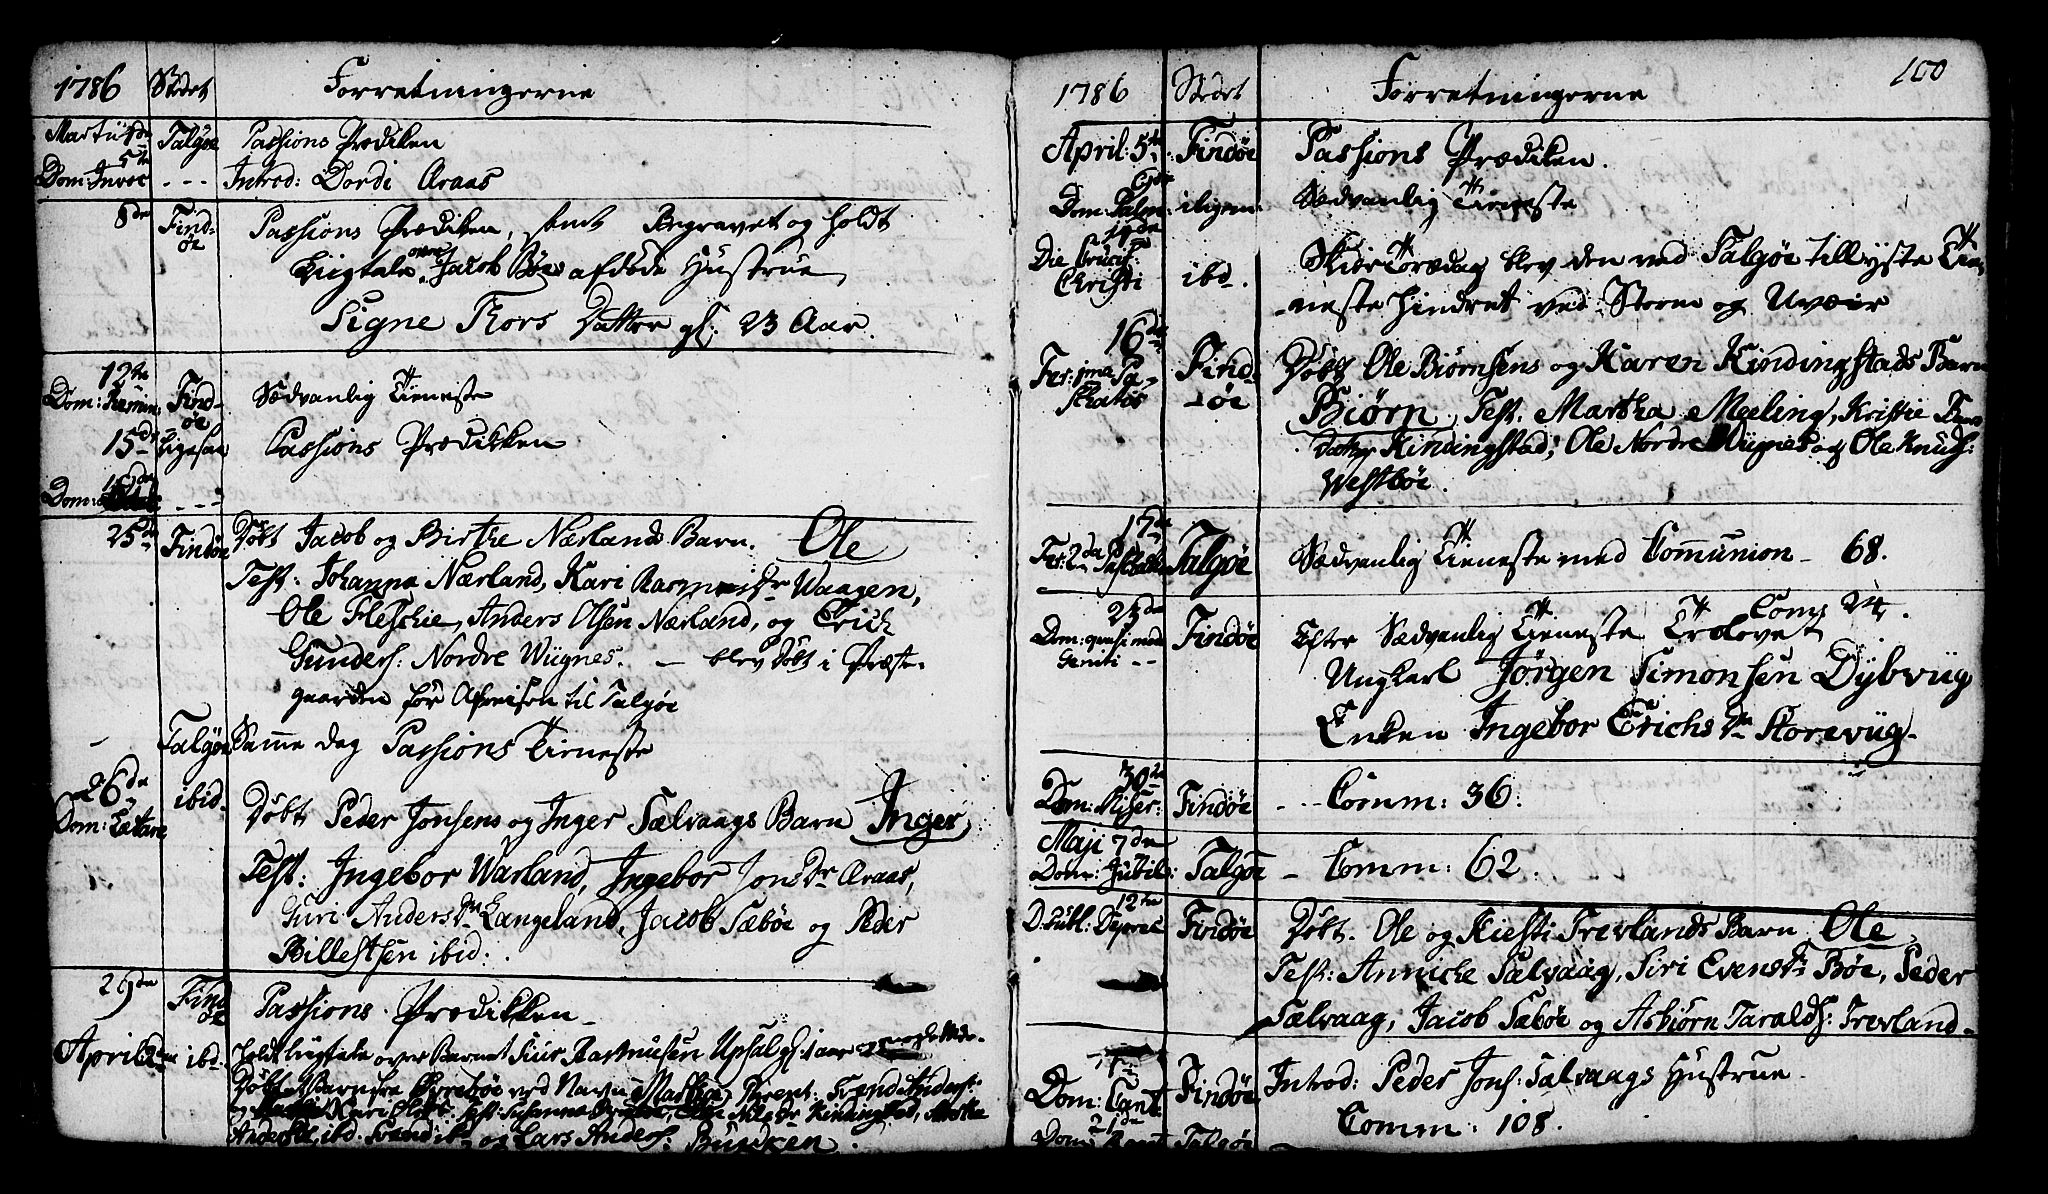 1786 Stedet Forretningerne
Martii 1de Talgøe Passions Prædiken
5te Dom: Invoc - - - Introd: Dordi Araas
8de Findøe Passions Prædiken, samt Begravet og holdt
Liigtale over Jacob Bøes afdøde Hustrue
Signe Thors Datter gl: 23 Aar.
12te Dom: Findøe Sædvanlig Tieneste
15de Passions Prædikken
Dom: - - -
25de Findøe Døbt Jacob og Birthe Nærlands Barn. Ole
Test: Johanna Nærland, Kari Rasmusdr Waagen,
Ole Fleschie, Anders Olsen Nærland, og Erich
Gunders: Nordre Wiignes. — blev døbt i Præste-
gaarden før Afreisen til Talgøe
Talgøe Samme dag Passions Tieneste
26de Dom: Lætare ibid. Døbt Peder Jonsens og Inger Sælvaags Barn Inger
Test: Ingebor Warland, Ingebor Jonsdr Araas,
Guri Andersdr Langeland, Jacob Sæbøe og Peder
Billestsen ibid:.
29de Findøe Passions Prædikken
April 2den ibd. holdt liigtale over Barnet Siur Rasmusen Upsal gl: 1 aar
Døbt ved Navn Martha
Kari Test: Susanna Nilsdr Kindingstad,
ibd. Svend og Lars Anders:
1786 Stedet Forretningerne 100
April: 5te Findøe Passions Prædiken.
9de Dom: Palm: iligem: Sædvanlig Tieneste
14de Die Cruc: Christi ibd. Skiærtorsdag blev den ved Talgøe tillyste Tie-
neste hindret ved Storm og Uveir
16de Fer: 1ma Paschatos Findøe Døbt Ole Biørnsens og Karen Kindingstads Barn
Biørn, Test. Martha Meeling, Kirstie
Datter Kindingstad, Ole Nordre Wiignes og Ole Knuds:
Westbøe.
17de Fer: 2da Paschatos Talgøe Sædvanlig Tieneste med Communion - 68.
23de Dom: quasi modo Geniti - - Findøe Efter Sædvanlig Tieneste Comm: 24. Trolovet
Ungkarl Jørgen Simonsen Dybviig
Enken Ingebor Erichsdr Storeviig.
30te Dom: Miser: Findøe - - - Comm: 36.
Maji 7de Dom: Jubil: Talgøe - Comm: 62.
12te D: Publ: Deprec Findøe Døbt. Ole og Kiesti Trevlands Barn Ole
Test: Annicke Sælvaag, Siri Evensdr Bøe, Peder
Sælvaag, Jacob Sæbøe og Asbiørn Taralds: Trevland-
Dom: Cant Findøe Introd: Peder Jons: Sælvaags Hustrue.
Comm: 108.
21de Dom: Talgøe